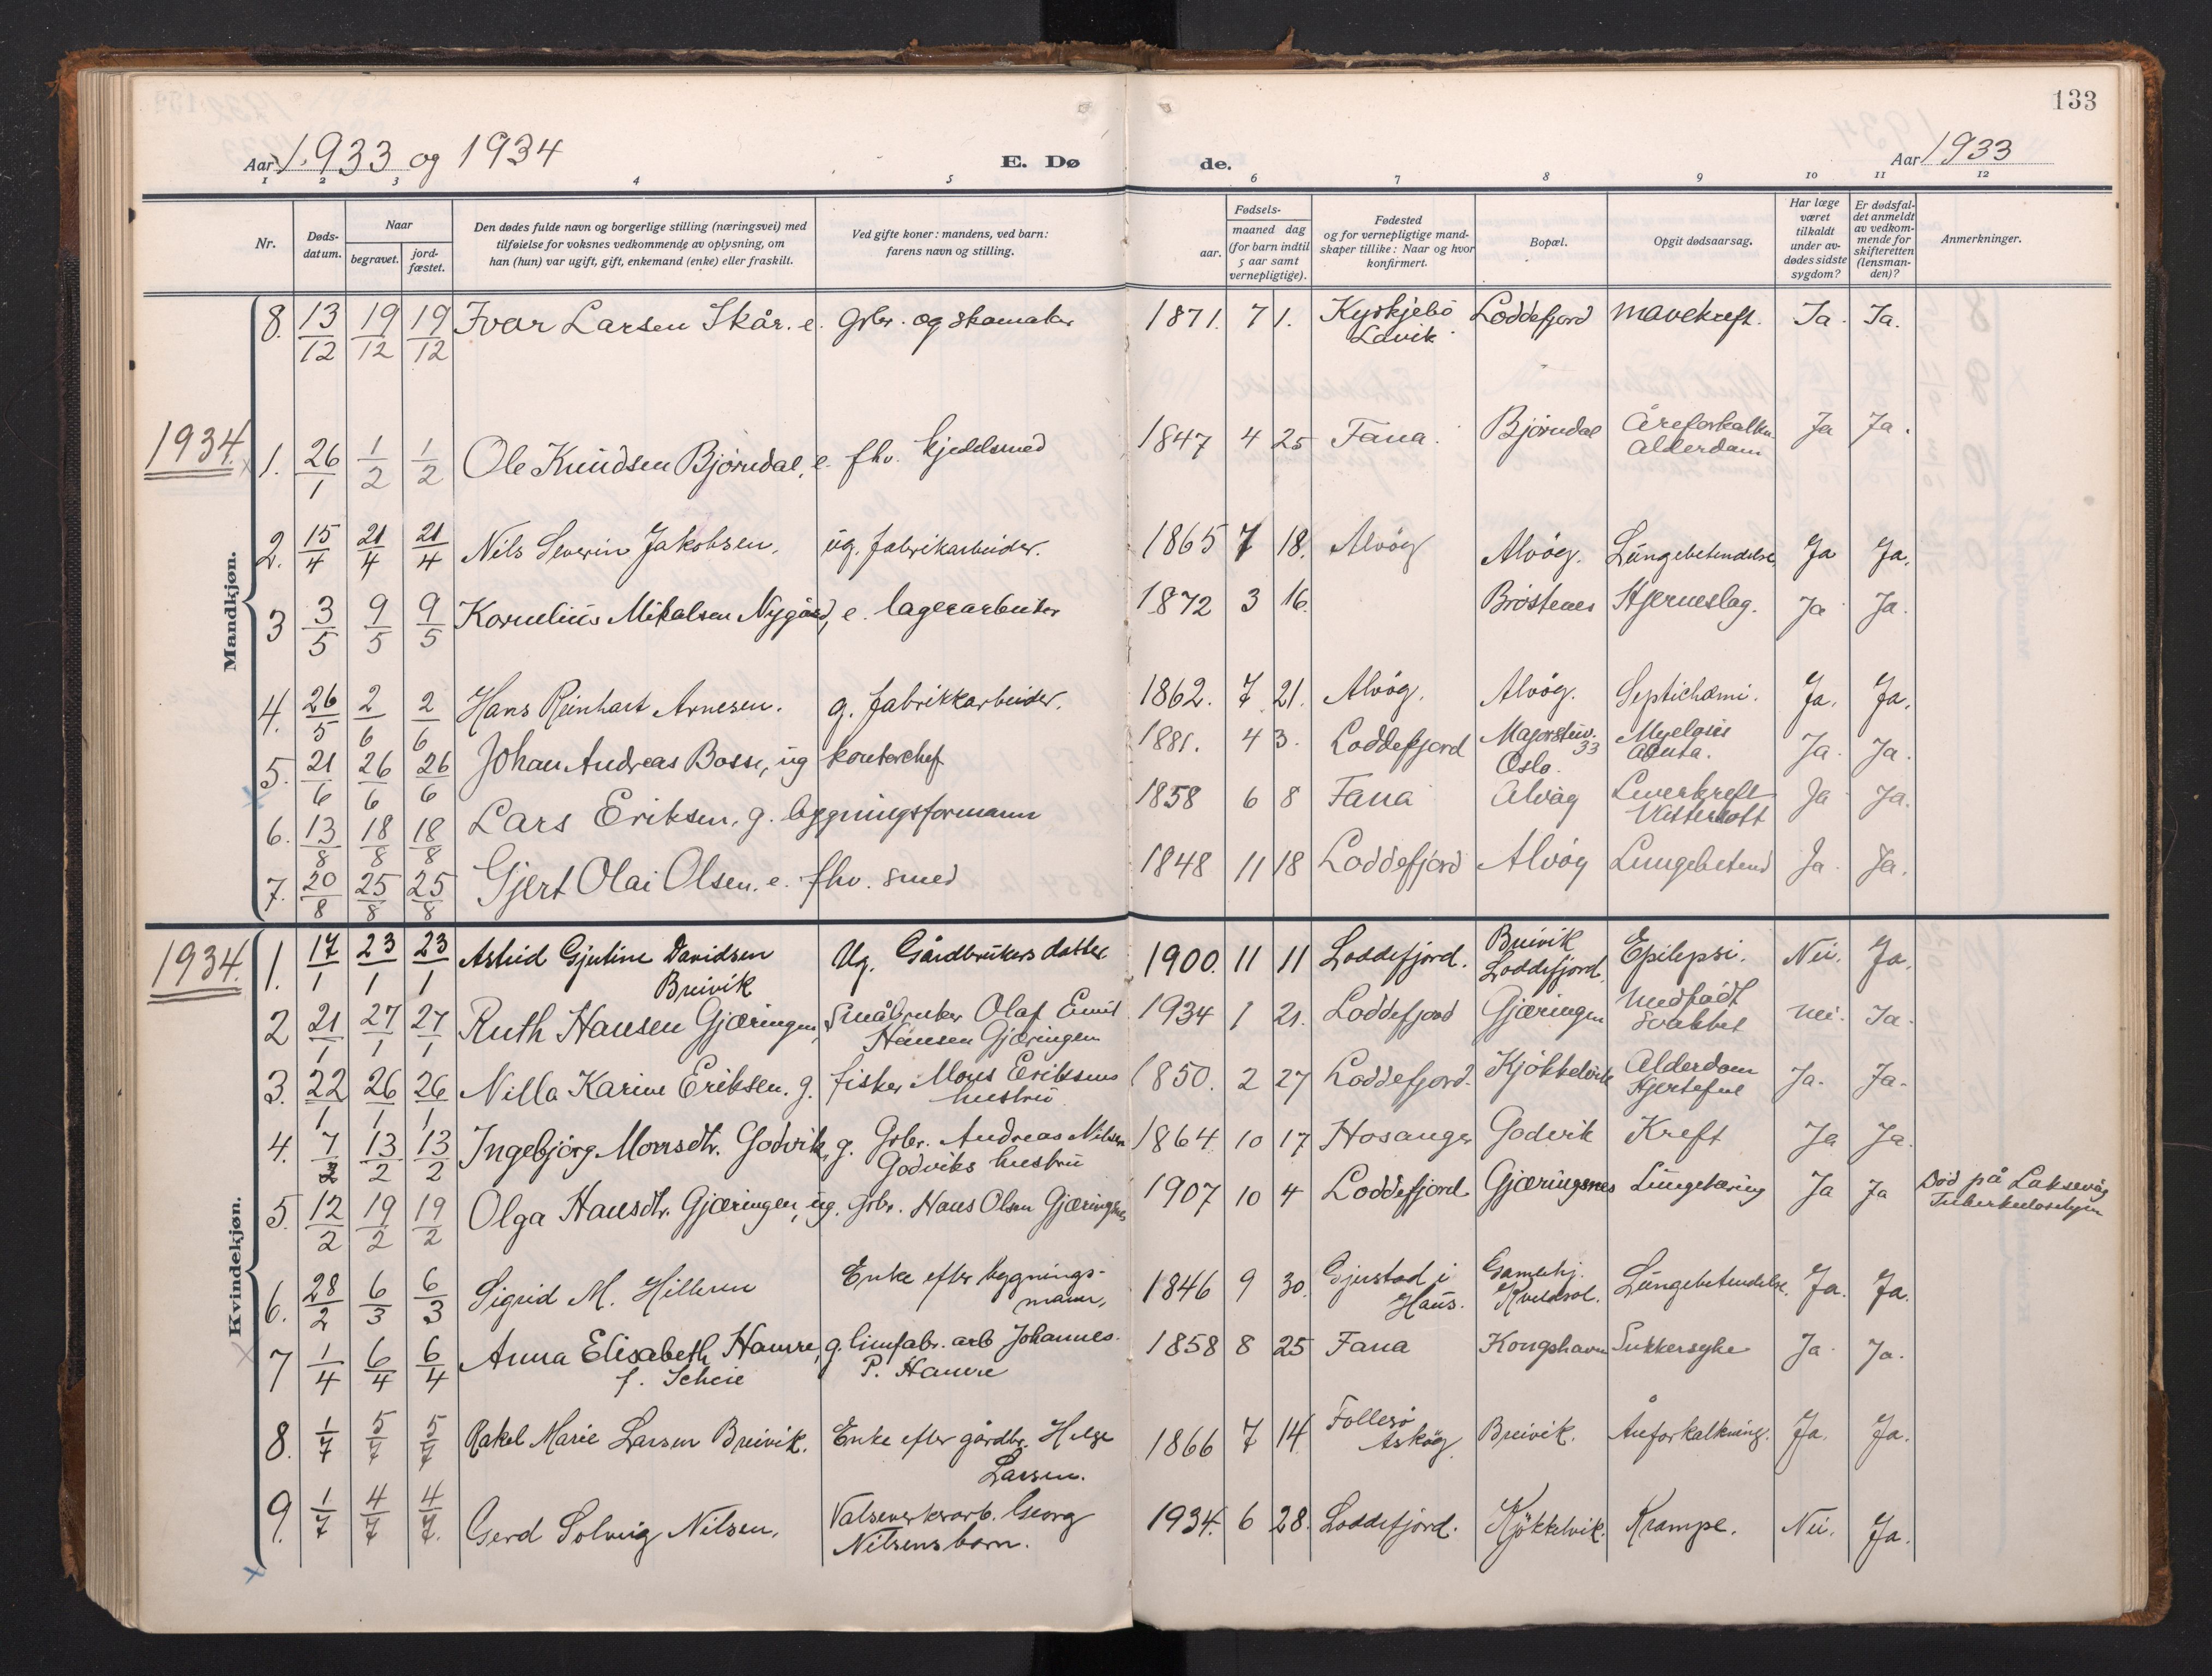 133
Aar 1933 og 1934
E. Dø
de.
Aar 1933
1 2 3 4 5 6 7 8 9 10 11 12
Nr.
Døds-
datum.
Naar
begravet.
jord-
fæstet.
Den dødes fulde navn og borgerlige stilling (næringsvei) med
tilføielse for voksnes vedkommende av oplysning, om
han (hun) var ugift, gift, enkemand (enke) eller fraskilt.
Ved gifte koner: mandens, ved barn:
farens navn og stilling.
Fødsels-
aar.
maaned dag
(for barn indtil
5 aar samt
vernepligtige).
Fødested
og for vernepligtige mand-
skaper tillike: Naar og hvor
konfirmert.
Bopæl.
Opgit dødsaarsag.
Har læge
været
tilkaldt
under av-
dødes sidste
sygdom?
Er dødsfal-
det anmeldt
av vedkom-
mende for
skifteretten
(lensman-
den)?
Anmerkninger.
Mandkjøn.
8. 13/12 19/12 19/12 Ivar Larsen Skår. e. Gbr. og skomaker 1871. 7 1. Kyrkjebö Loddefjord mavekreft. Ja. Ja.
Lavik
1934.
1. 26/1 1/2 1/2 Ole Knudsen Bjørndal, e. fhv. kjedelsmed 1847 4 25 Fana. Bjørndal Åreforkalkn. Ja Ja.
Alderdom
2. 15/4 21/4 21/4 Nils Severin Jakobsen. ug. fabrikarbeider. 1865 7 18. Alvøy Alvøy. Lungebetendelse. Ja Ja.
3 3/5 9/5 9/5 Kornelius Mikalsen Nygård, e. lagerarbeider 1872 3 16. Brostenes Hjerneslag. Ja Ja.
4. 26/5 2/6 2/6 Hans Reinhart Arnesen. g. fabrikkarbeider. 1862. 7 21. Alvøy. Alvøy. Septichæmi. Ja. Ja.
5. 21/6 26/6 26/6 Johan Andreas Bosse, ug kontorchef 1881. 4 3. Loddefjord Majorstuv. 33 Myelosis Ja. Ja.
Oslo. acuta.
6. 13/8 18/8 18/8 Lars Eriksen, g. bygningsformann 1858 6 8 Fana Alvøy Leverkreft Ja Ja.
7. 20/8 25/8 25/8 Gjert Olai Olsen. e. fhv. smed 1848 11 18 Loddefjord Alvøy Lungebetend Ja. Ja.
Kvindekjøn.
1934.
1. 17/1 23/1 23/1 Astrid Gjertine Davidsen Ug. Gårdbrukers datter 1900. 11 11 Loddefjord. Breivik Epilepsi. Nei. Ja.
Breivik Loddefjord.
2 21/1 27/1 27/1 Ruth Hansen Gjæringen, Småbruker Olaf Emil 1934 1 21. Loddefjord Gjæringen Medfødt Nei. Ja.
Hansen Gjæringen Svakhet
3. 22/1 26/1 26/1 Nilla Karine Eriksen. g. fisker Mons Eriksens 1850. 2 27 Loddefjord. Kjøkkelvik Alderdom Ja. Ja.
hustru Hjertefeil
4. 7/2 13/2 13/2 Ingebjørg Monsdtr. Godvik, g. Gbr. Andreas Nilsen 1864 10 17 Hosanger Godvik Kreft Ja Ja.
Godviks hustru
5. 12/2 19/2 19/2 Olga Hansdtr. Gjæringen, ug. Gbr. Hans Olsen Gjæringsnes 1907 10 4 Loddefjord Gjæringsnes Lungetæring Ja Ja Död på Laksevåg
Tuberkulosehjem
6. 28/2 6/3 6/3 Sigrid M. Hilleren Enke efter bygnings- 1846 9 30. Gjerstad i Gamlehj. Lungebetendelse. Ja. Ja.
mann. Haus. Kveldsol.
7 1/4 6/4 6/4 Anna Elisabeth Hamre, g. limfabr. arb Johannes 1858 8 25 Fana Kongshavn Sukkersyke Ja Ja.
f. Scheie P. Hamre
8. 1/7 5/7 5/7 Rakel Marie Larsen Breivik. Enke efter gårdbr. Helge 1866 7 14 Follesø Breivik. Åreforkalkning. Ja. Ja.
Larsen. Askøy
9. 1/7 4/7 4/7. Gerd Solveig Nilsen. Valseverksarb. Georg 1934. 6 28. Loddefjord. Kjøkkelvik. Krampe. Nei. Ja.
Nilsens barn.